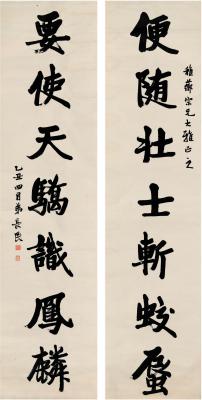 便随壮士斬蛟蜃
宗兄大雅正之
要使天驕識鳳麟
乙丑四月弟長民